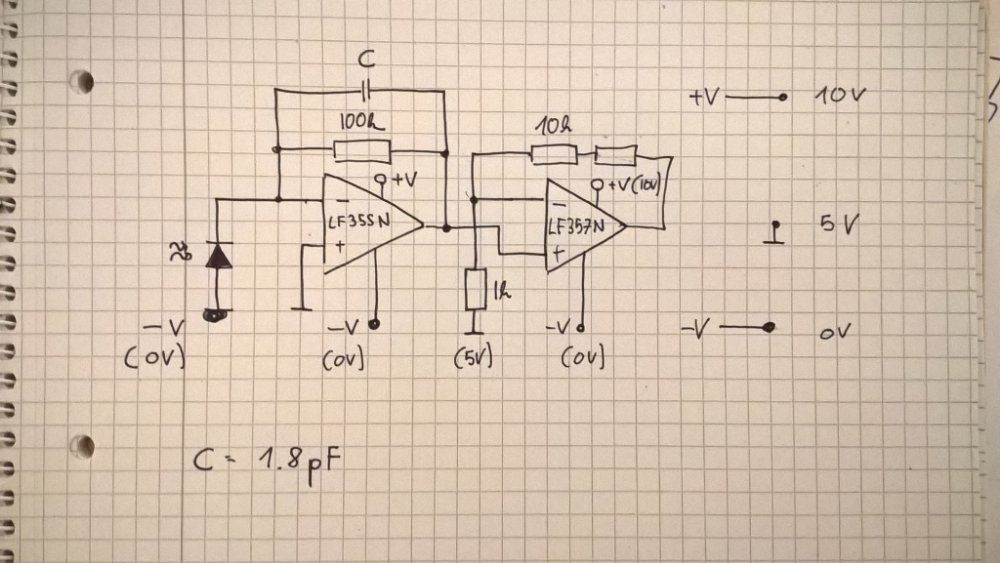 C
100k
+V
-
LF355N
+
-V
(0V)
-V
(0V)
10k
+V(10V)
-
LF357N
+
1k
(5V)
-V
(0V)
+V 10V
5V
-V 0V
C = 1.8pF